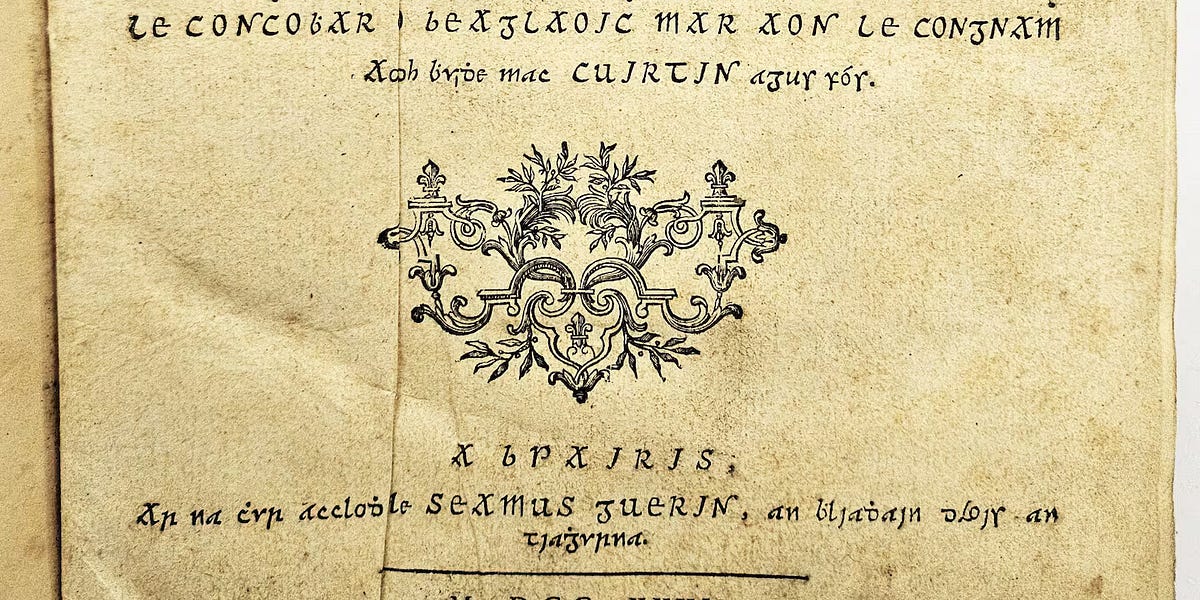 LE CONCOḂAR Ó BEAGLAOIC MAR AON LE CONGNAM
Aoḋ ḃuiḋe mac CUIRTIN agus fós.
A bPAIRIS,
Ar na ċur accloḋ le SEAMUS GUERIN, an ḃliaḋain d'aois an
tiaġurna.